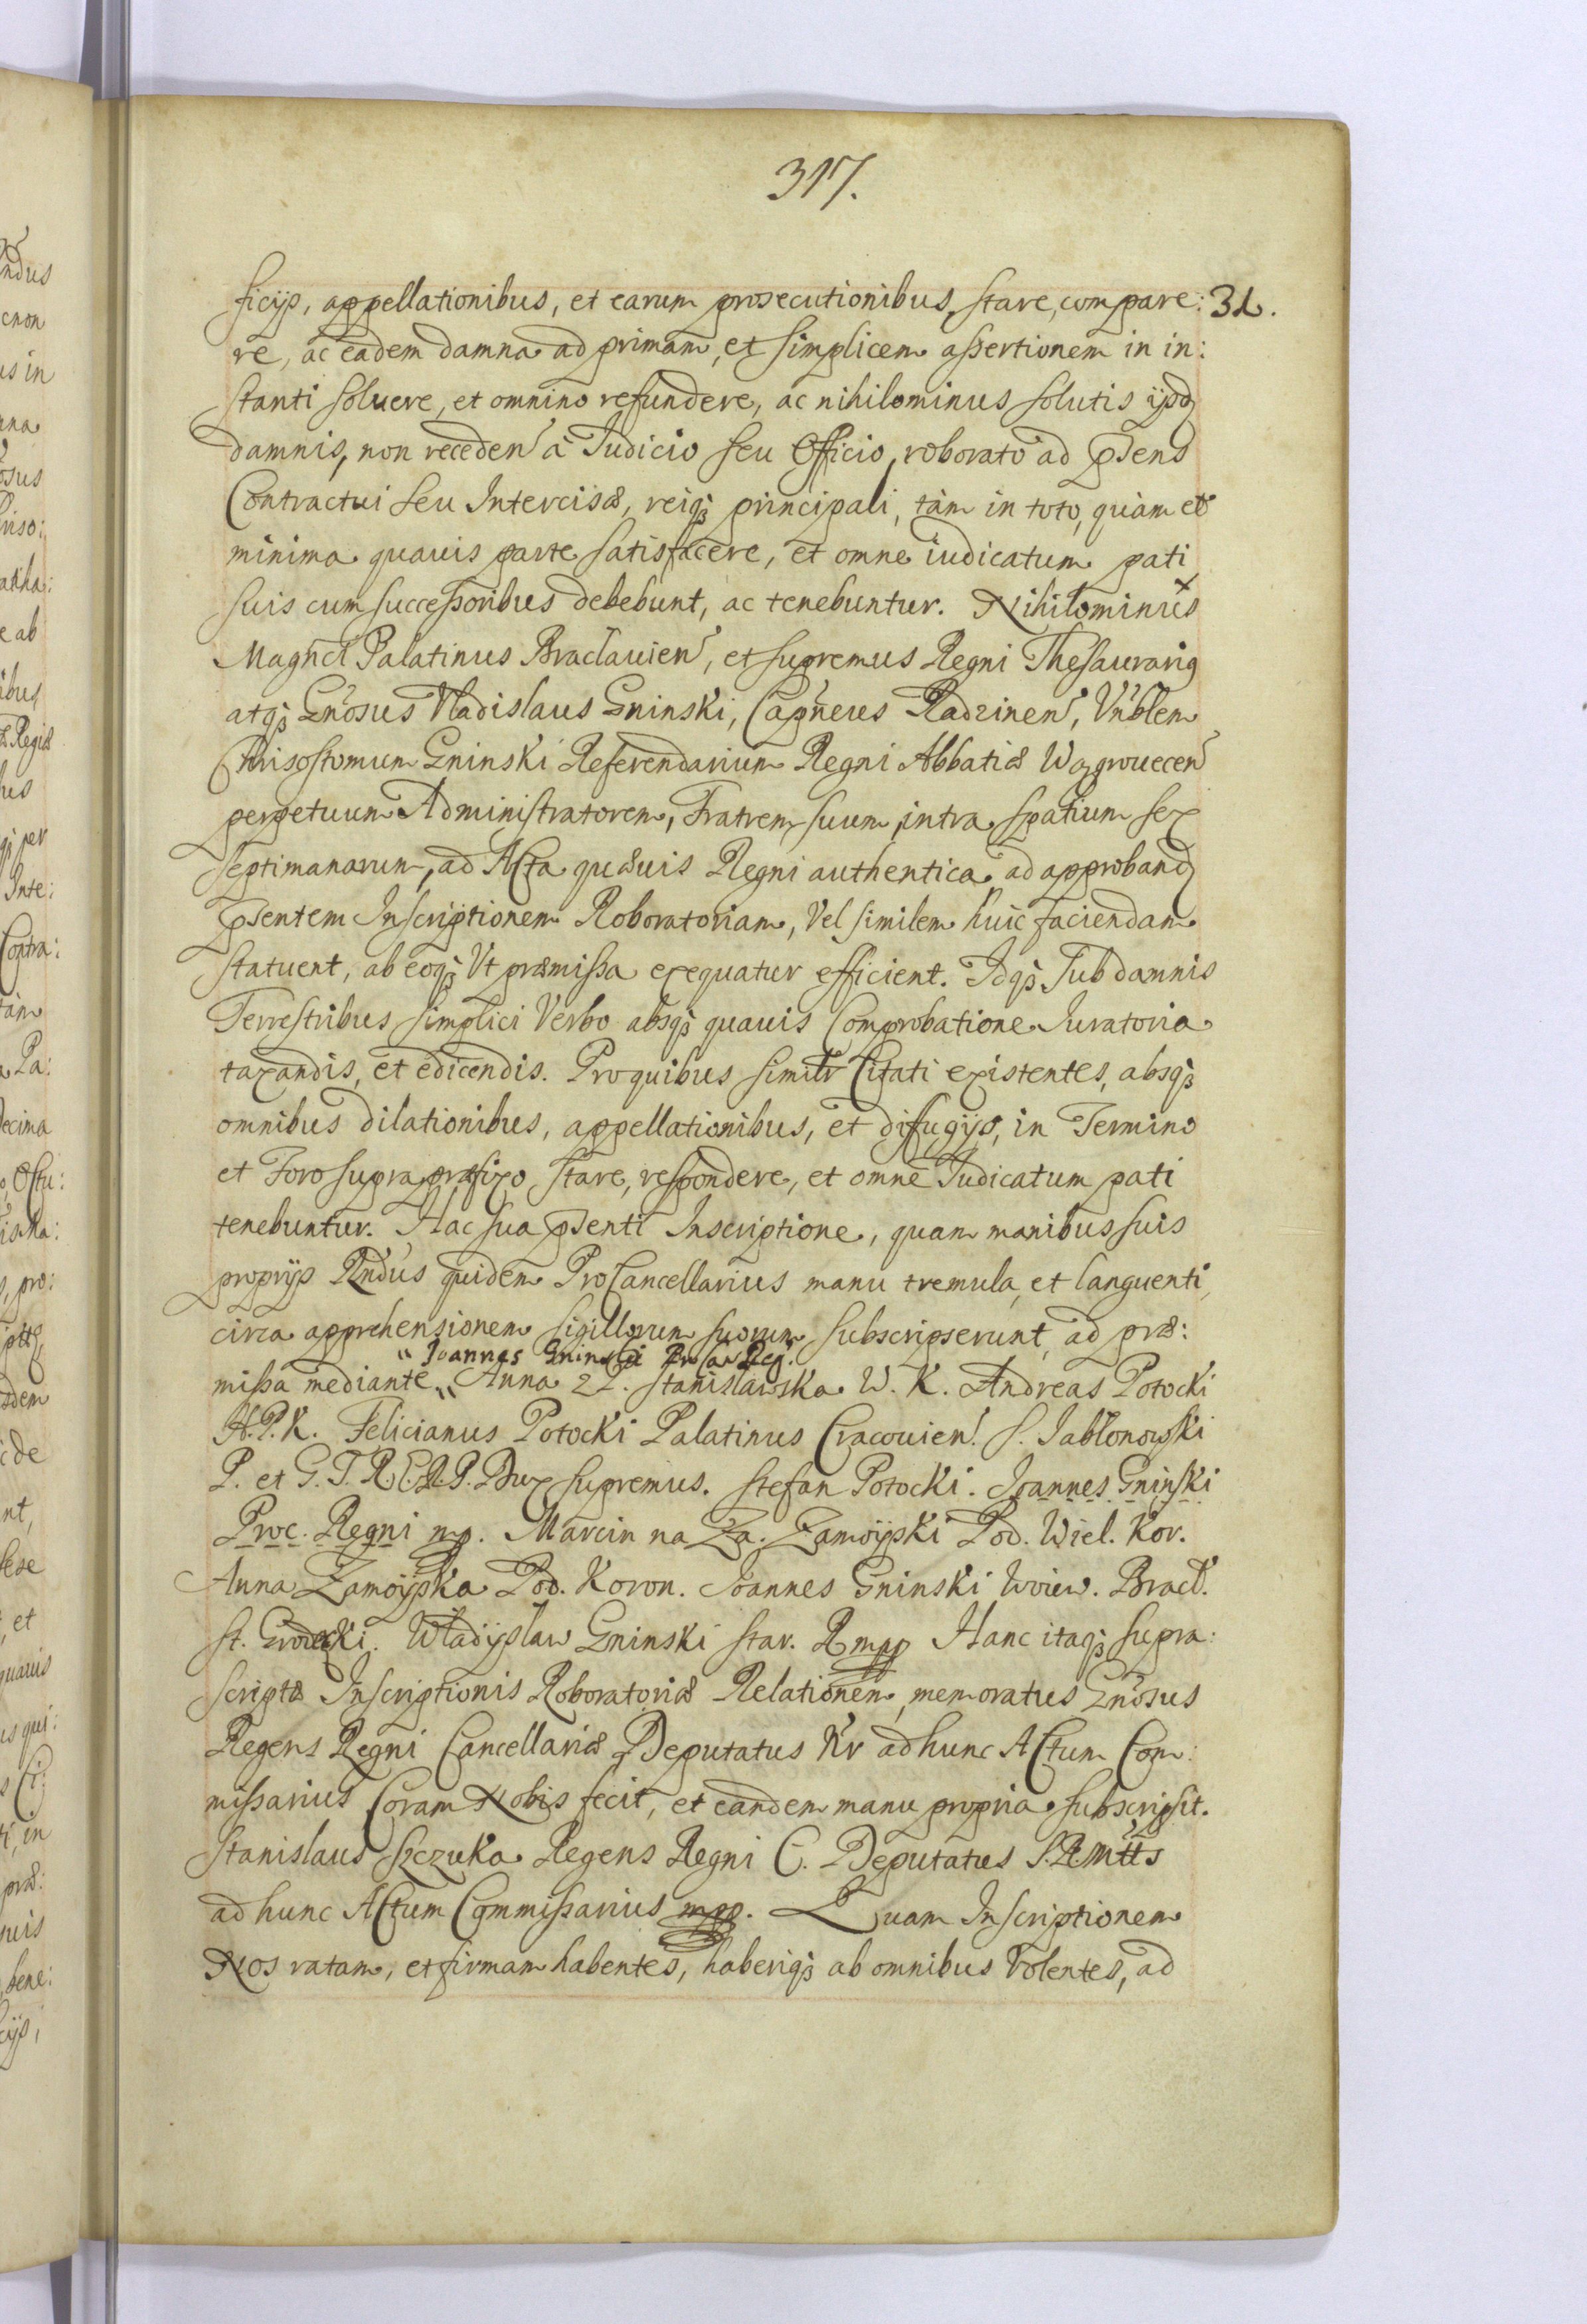 317.
ficijs, appellationibus, et earum prosecutionibus, stare, compare: 31.
re, ac eadem damna ad primam, et simplicem assertionem in in:
stanti soluere, et omnino refundere, ac nihilominus solutis ijsdq
damnis, non receden̄ à Iudicio seu Officio, roborato ad p̄sens
Contractui seu Intercisæ, reiq₃ principali, tàm in toto, quàm et
minima quauis parte satisfacere, et omne iudicatum pati
suis cum successoribus debebunt, ac tenebuntur. Nihilominus
Magn̄cī Palatinus Bracłauien̄, et supremus Regni Thesaurariq
atq₃ Gn̄osus Vladislaus Gninski, Cap̄neus Radzinen̄, Vn̄blem
Chrisostomum Gninski Referendarium Regni Abbatiæ Wągrouecen̄
perpetuum Administratorem, Fratrem suum, intra spatium sex
septimanarum, ad Acta quæuis Regni authentica, ad approband
p̄sentem Inscriptionem Roboratoriam, Vel similem huic faciendam
statuent, ab eoq₃ Vt præmissa exequatur efficient. Idq₃ sub damnis
Terrestribus simplici Verbo absq₃ quauis Comprobatione Iuratoria
taxandis, et edicendis. Pro quibus similr̄ Citati existentes, absq₃
omnibus dilationibus, appellationibus, et diffugijs, in Termino
et Foro supra præfixo stare, respondere, et omne Iudicatum pati
tenebuntur. Hac sua p̄senti Inscriptione, quam manibus suis
proprijs Rn̄dus quidem ProCancellarius manu tremula, et languenti,
circa apprehensionem sigillorum suorum subscripserunt, ad præ:
„ Joannes Gninski ProCan Reg.
missa mediante „ Anna 2P. Stanisławska W. K. Andreas Potocki
H. P. K. Felicianus Potocki Palatinus Cracouien̄. S. Jabłonowski
P. et G. T. R. E. R. P. Dux supremus. Stefan Potocki. Joannes Gninski
Proc. Regni mp. Marcin na Za. Zamoyski Pod. Wiel. Kor.
Anna Zamoyska Pod. Koron. Joannes Gninski Woiew. Bracł.
St. Grodecki. Władysław Gninski Star. R mpp Hanc itaq₃ supra:
scriptæ Inscriptionis Roboratoriæ Relationem, memoratus Gn̄osus
Regens Regni Cancellariæ Deputatus Nr̄ ad hunc Actum Com:
missarius Coram Nobis fecit, et eandem manu propria subscripsit.
Stanislaus Szczuka Regens Regni C. Deputatus S. R. Mttis
ad hunc Actum Commissarius mpp. Quam Inscriptionem
Nos ratam, et firmam habentes, haberiq₃ ab omnibus Volentes, ad